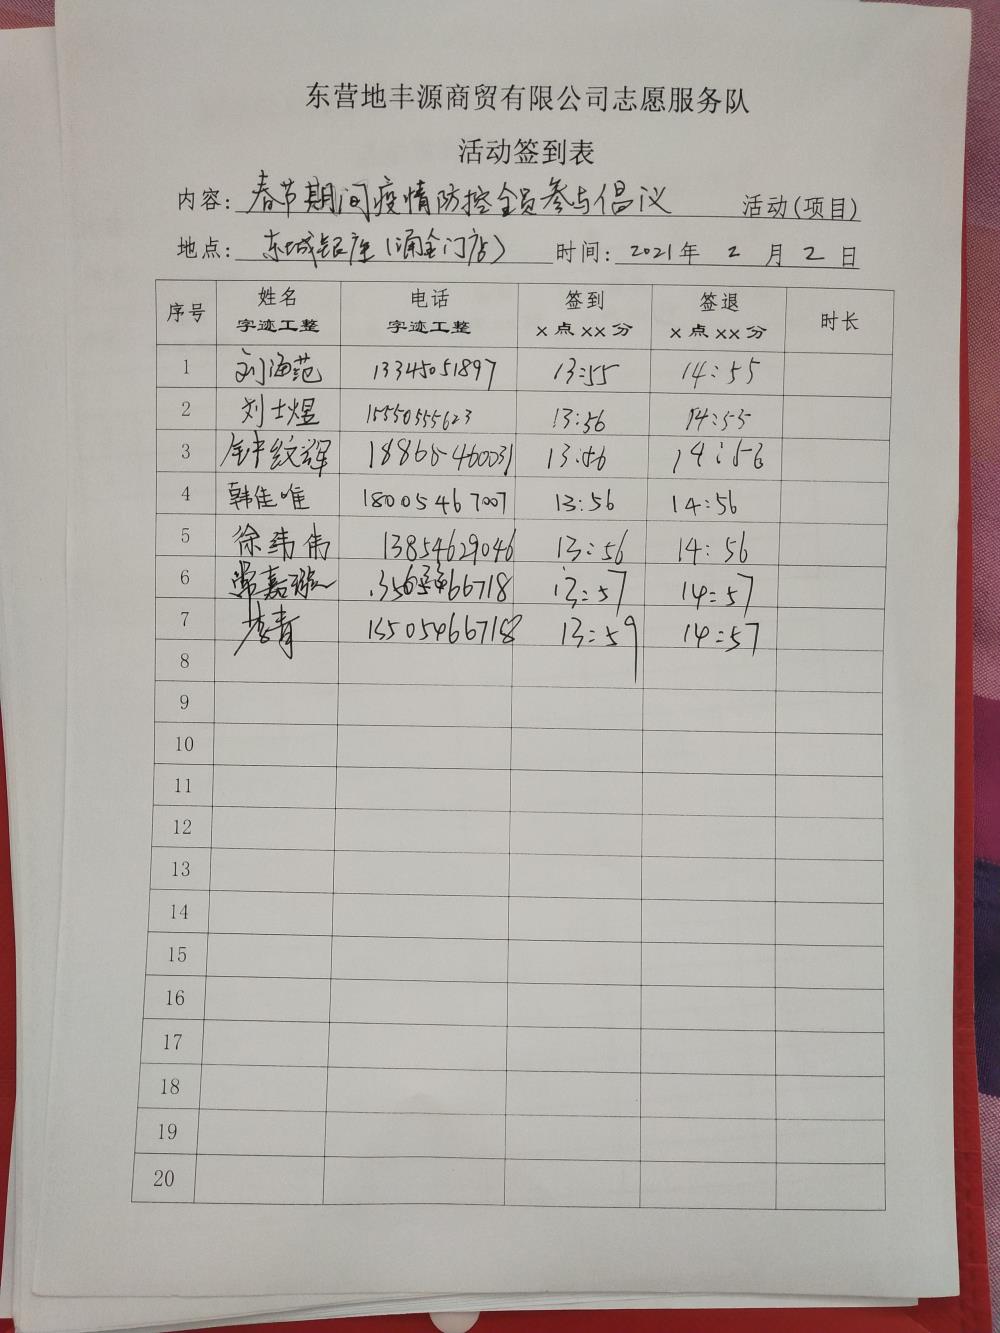 东营地丰源商贸有限公司志愿服务队
活动签到表
内容: 春节期间疫情防控全员参与倡议 活动(项目)
地点: 东城银座(涌金门店) 时间: 2021年 2 月 2 日
序号 姓名 字迹工整 电话 字迹工整 签到 x点xx分 签退 x点xx分 时长
1 刘海范 13345051897 13:55 14:55
2 刘士煜 15550555623 13:56 14:55
3 钟纹辉 18865460031 13:56 14:56
4 韩佳唯 18005467007 13:56 14:56
5 徐玮伟 13854629046 13:56 14:56
6 常嘉 13:57 14:57
7 李青 13505466718 13:59 14:57
8
9
10
11
12
13
14
15
16
17
18
19
20